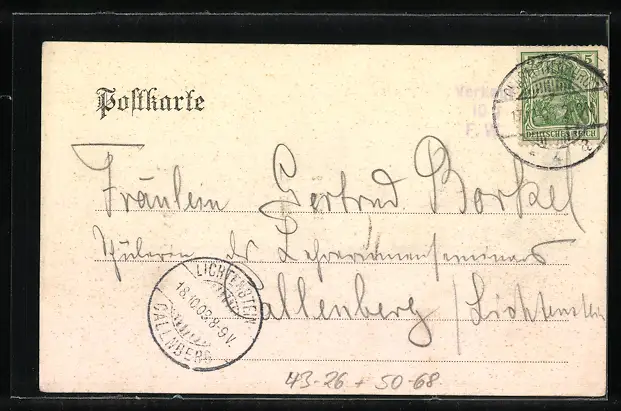 Postkarte
5
DEUTSCHES REICH
Fräulein Gertrud Borkel
Schülerin des Lehrerinnenseminars
Callenberg / Lichtenstein
LICHTENSTEIN
18.10.03.8-9V.
CALLNBERG
43-26 + 50-68